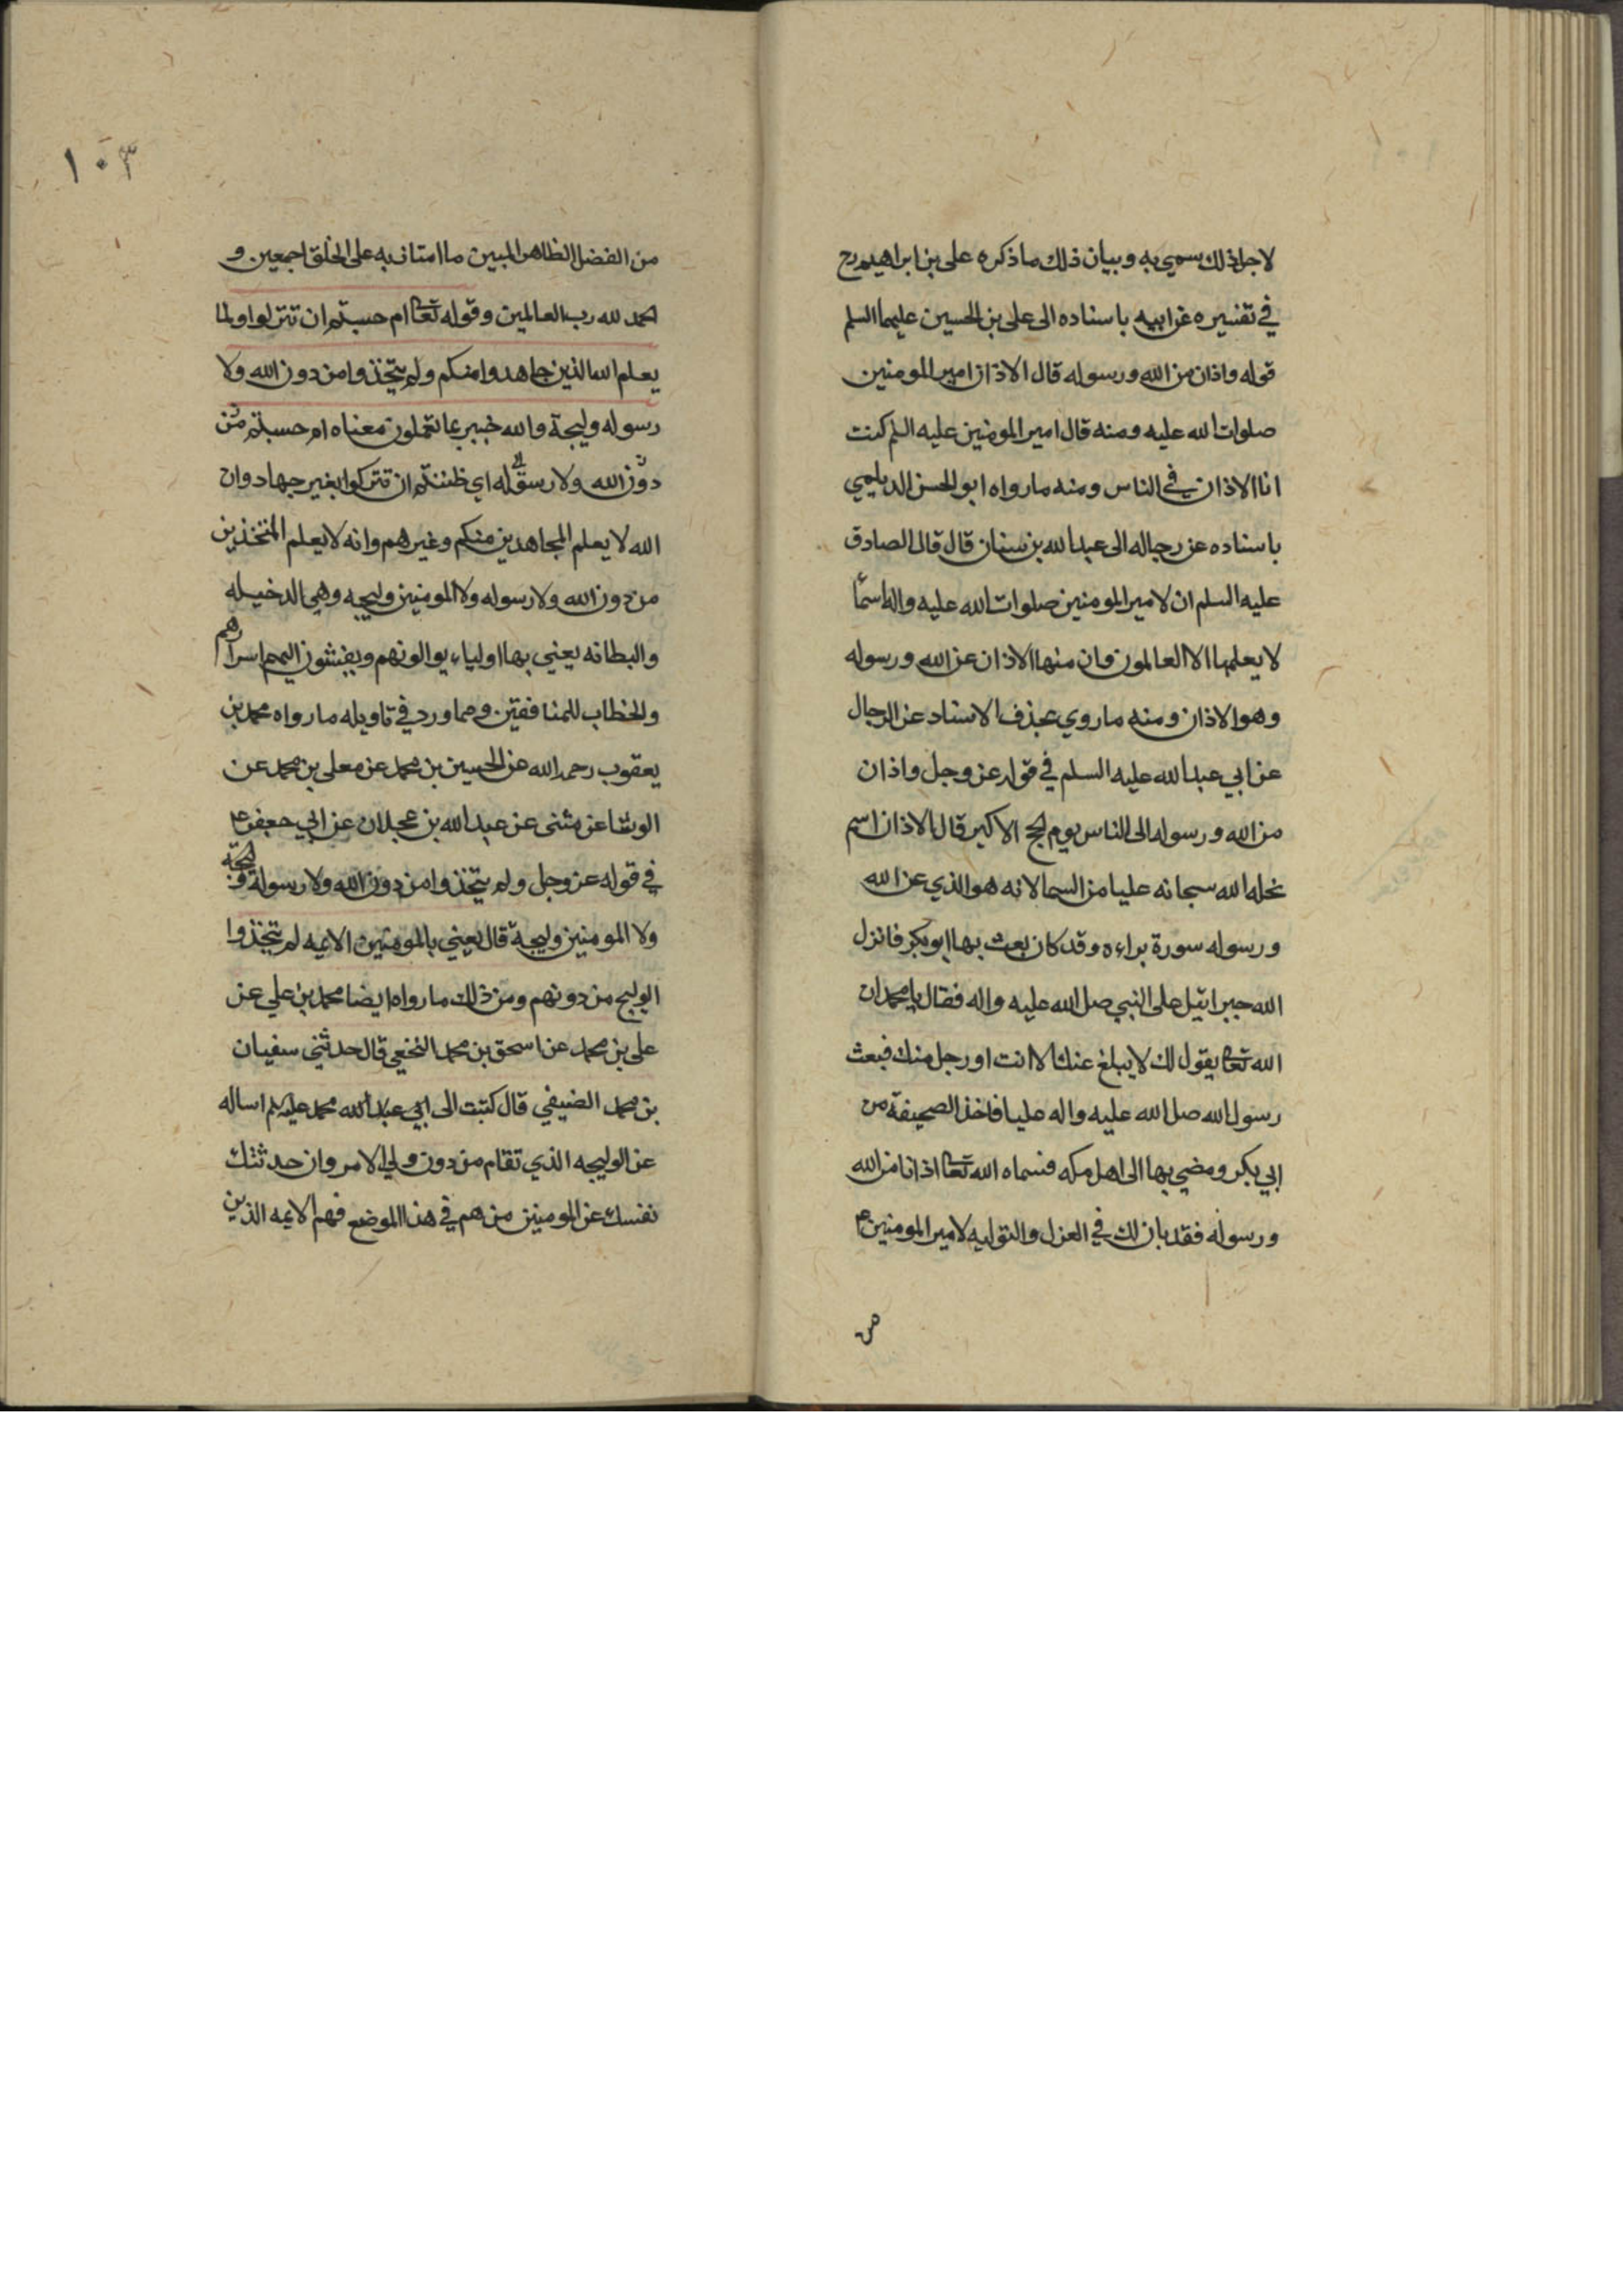 لاجل ذلك سمي به وبيان ذلك ما ذكره علي بن ابراهيم رح
في تفسيره عن ابيه باسناده الى علي بن الحسين عليهما السلم
قوله واذان من الله ورسوله قال الاذان امير المومنين
صلوات الله عليه ومنه قال امير المومنين عليه السلم كنت
انا الاذان في الناس ومنه ما رواه ابو الحسن الديلمي
باسناده عن رجاله الى عبد الله بن سنان قال قال الصادق
عليه السلم ان لامير المومنين صلوات الله عليه واله اسما
لا يعلمها الا العالمون وان منها الاذان عن الله ورسوله
وهو الاذان ومنه ما روي بحذف الاسناد عن الرجال
عن ابي عبد الله عليه السلم في قوله عز وجل واذان
من الله ورسوله الى الناس يوم الحج الاكبر قال الاذان اسم
نحله الله سبحانه عليا من السما لانه هو الذي عن الله
ورسوله سورة براءه وقد كان بعث بها ابو بكر فانزل
الله جبرائيل على النبي صل الله عليه واله فقال يا محمد ان
الله تعا يقول لك لا يبلغ عنك الا انت او رجل منك فبعث
رسول الله صل الله عليه واله عليا فاخذ الصحيفة من
ابي بكر ومضي بها الى اهل مكه فسماه الله تعا اذانا من الله
ورسوله فقد بان لك في العزل والتوليه لامير المومنين ع
من
١٠٣
من الفضل الظاهر المبين ما امتاز به على الخلق اجمعين و
الحمد لله رب العالمين وقوله تعا ام حسبتم ان تتركوا ولما
يعلم الله الذين جاهدوا منكم ولم يتخذوا من دون الله ولا
رسوله وليجة والله خبير بما تعملون معناه ام حسبتم من
دون الله ولا رسوله اي ظننتم ان تتركوا بغير جهاد وان
الله لا يعلم المجاهدين منكم وغيرهم وانه لا يعلم المتخذين
من دون الله ولا رسوله ولا المومنين وليجه وهي الدخيله
والبطانه يعني بها اولياء يوالونهم ويفشون اليهم اسرارهم
والخطاب للمنافقين ومما ورد في تاويله ما رواه محمد بن
يعقوب رحمه الله عن الحسين بن محمد عن معلى بن محمد عن
الوشا عن مثنى عن عبد الله بن عجلان عن ابي جعفر ع
في قوله عز وجل ولم يتخذوا من دون الله ولا رسوله
ولا المومنين وليجة قال يعني بالمومنين الايمه لم يتخذوا
الوليج من دونهم ومن ذلك ما رواه ايضا محمد بن علي عن
علي بن محمد عن اسحق بن محمد النخعي قال حدثني سفيان
بن محمد الضيفي قال كتبت الى ابي عبد الله محمد عليه السلم اساله
عن الوليجه الذي تقام من دون ولي الامر وان حدثتك
نفسك عن المومنين من هم في هذا الموضع فهم الايمه الذين